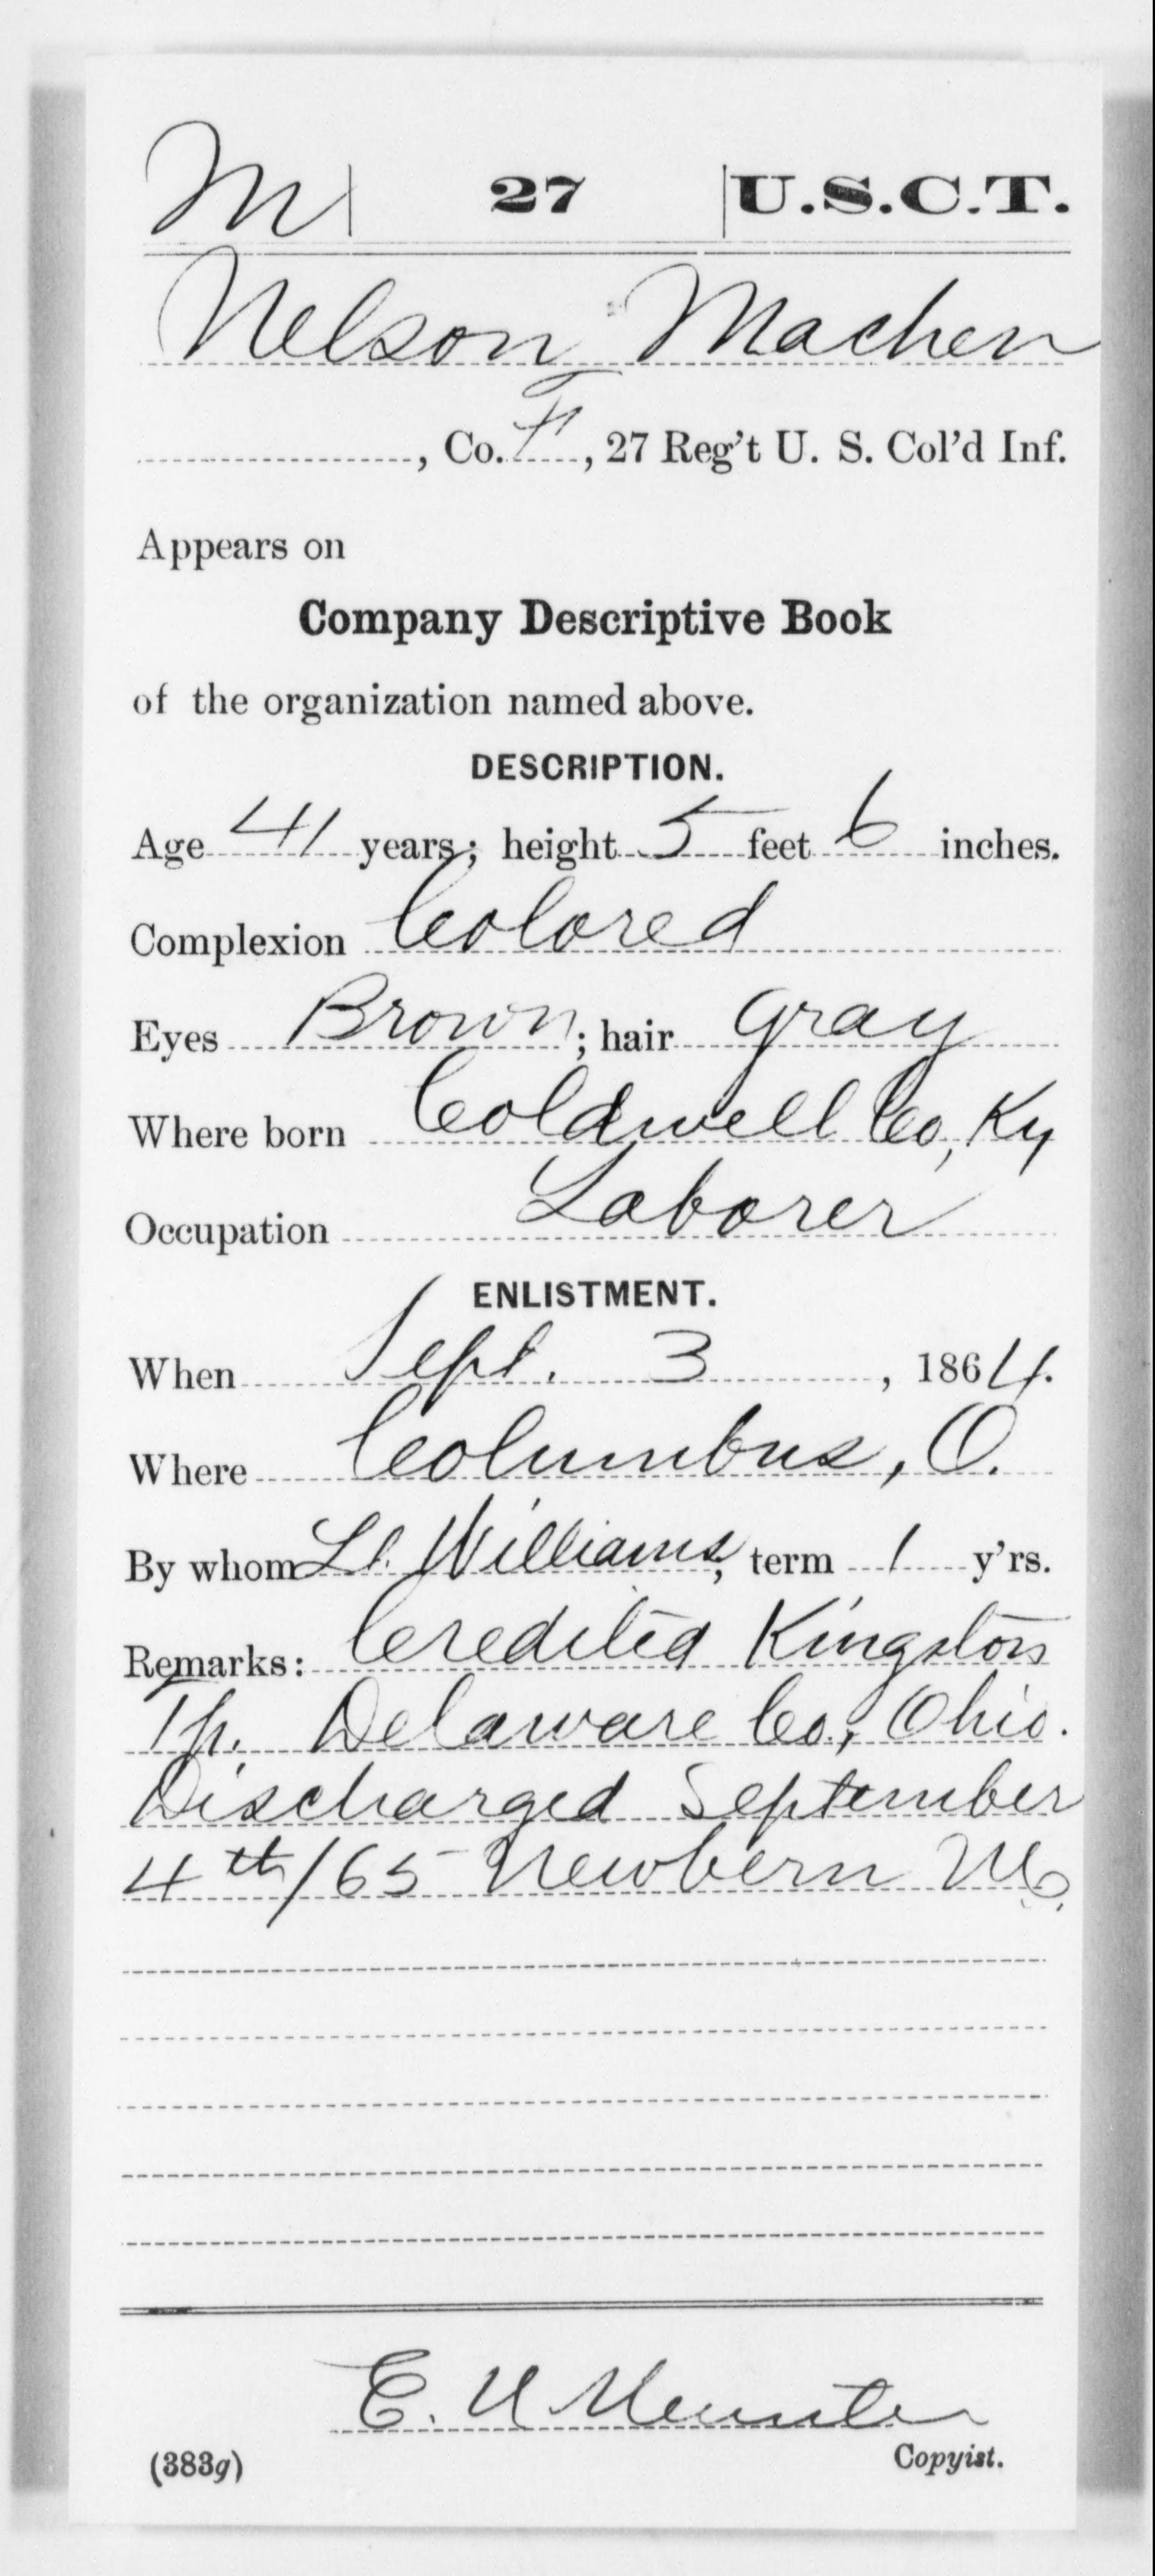 M 27 U.S.C.T.
Nelson Machen
, Co. F, 27 Reg't U. S. Col'd Inf.
Appears on
Company Descriptive Book
of the organization named above.
DESCRIPTION.
Age 41 years; height 5 feet 6 inches.
Complexion Colored
Eyes Brown; hair Gray
Where born Coldwell Co, Ky
Occupation Laborer
ENLISTMENT.
When Sept. 3, 1864.
Where Columbus, O.
By whom Lt. Williams; term 1 y'rs.
Remarks: Credited Kingston
Tp. Delaware Co., Ohio.
Discharged September
4th/65 Newbern N.C.
E. U
(383g) Copyist.